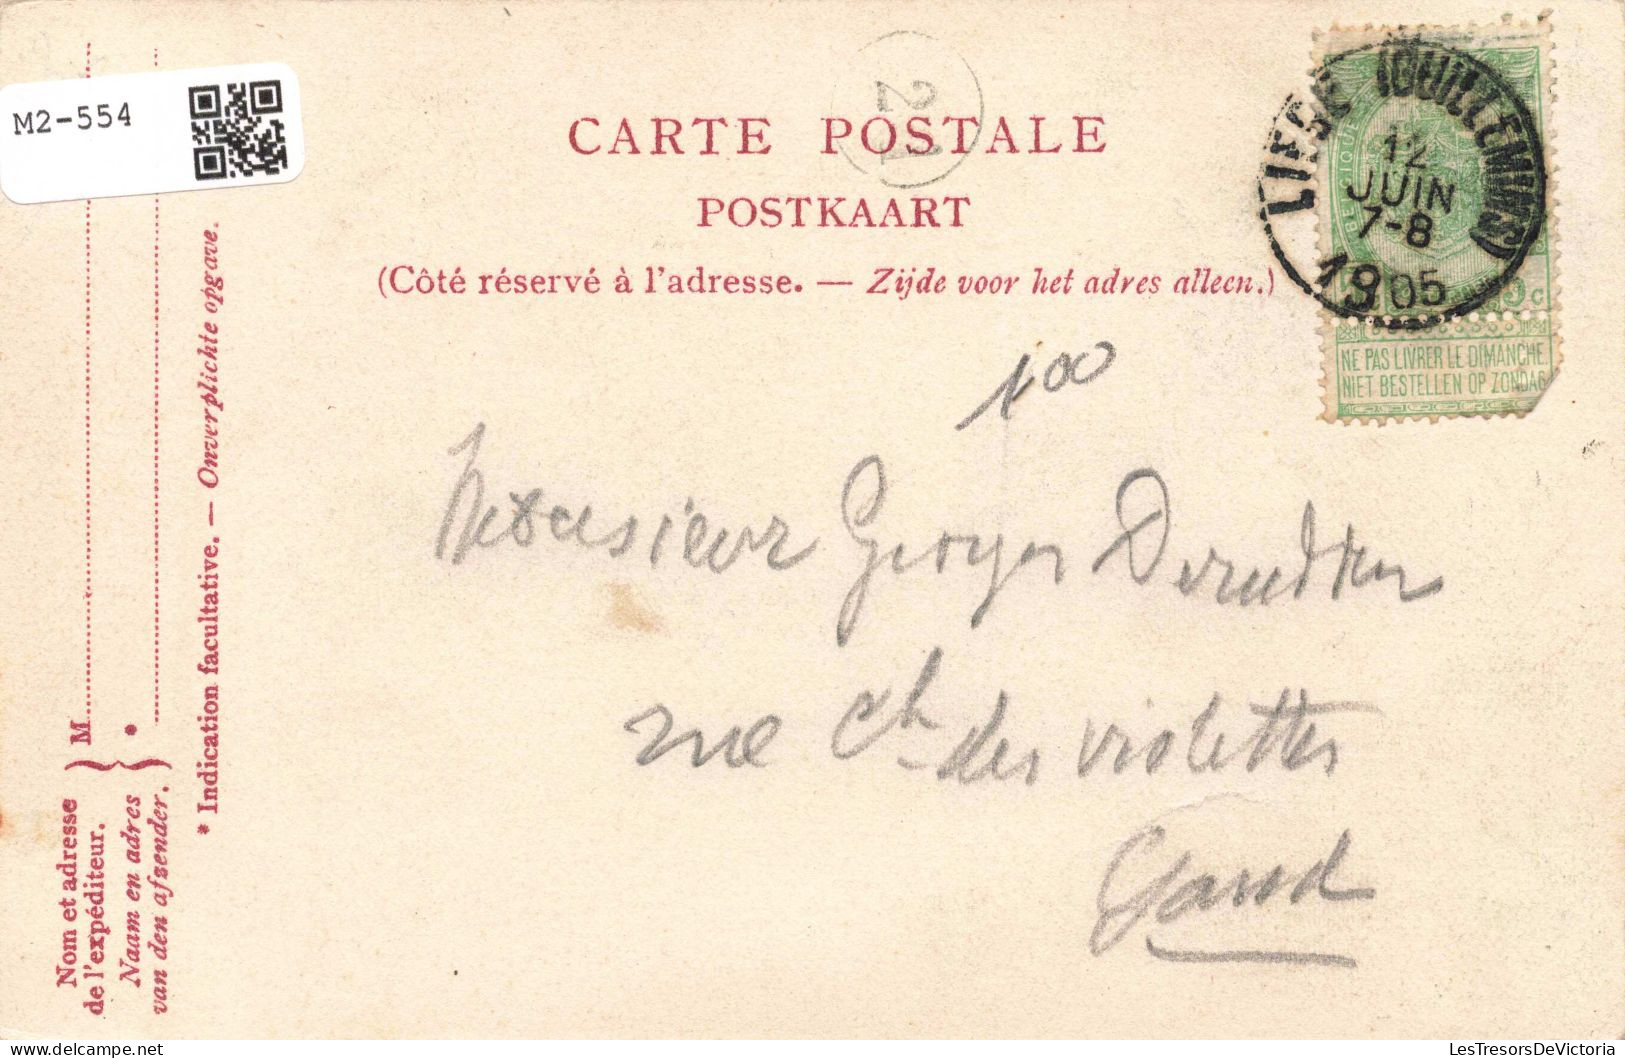 M2-554
21
CARTE POSTALE
POSTKAART
(Côté réservé à l'adresse. — Zijde voor het adres alleen.)
LIEGE (GUILLEMINS)
12
JUIN
7-8
1905
BELGIQUE
NE PAS LIVRER LE DIMANCHE
NIET BESTELLEN OP ZONDAG
100
Monsieur Georges
rue des violettes
Gand
Nom et adresse
de l'expéditeur.
Naam en adres
van den afzender.
M
*
* Indication facultative. — Onverplichte opgave.
LesTresorsDeVictoria